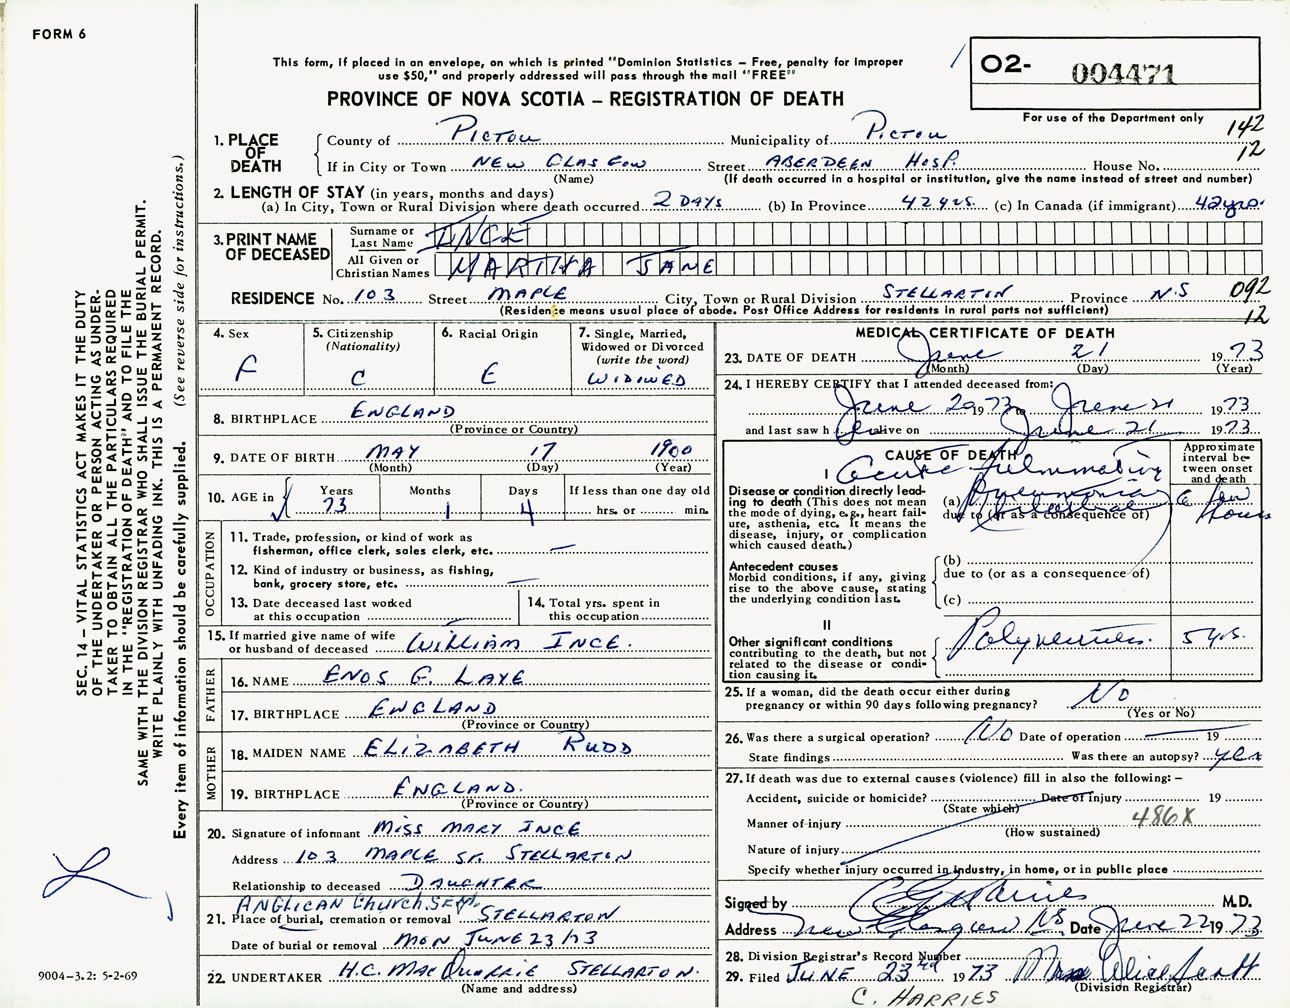 FORM 6
This form, if placed in an envelope, on which is printed "Dominion Statistics – Free, penalty for improper
use $50," and properly addressed will pass through the mail "FREE"
O2- 004471
PROVINCE OF NOVA SCOTIA – REGISTRATION OF DEATH
For use of the Department only
142
12
1. PLACE OF DEATH
County of PICTOU Municipality of PICTOU
If in City or Town NEW GLASGOW Street ABERDEEN HOSP. House No.
(Name) (If death occurred in a hospital or institution, give the name instead of street and number)
2. LENGTH OF STAY (in years, months and days)
(a) In City, Town or Rural Division where death occurred 2 DAYS (b) In Province 42 yrs. (c) In Canada (if immigrant) 42 yrs.
3. PRINT NAME OF DECEASED
Surname or Last Name INCE
All Given or Christian Names MARTHA JANE
RESIDENCE No. 103 Street MAPLE City, Town or Rural Division STELLARTON Province N.S 092
(Residence means usual place of abode. Post Office Address for residents in rural parts not sufficient) 12
4. Sex
F
5. Citizenship
(Nationality)
C
6. Racial Origin
E
7. Single, Married,
Widowed or Divorced
(write the word)
WIDIWED
8. BIRTHPLACE ENGLAND
(Province or Country)
9. DATE OF BIRTH MAY 17 1900
(Month) (Day) (Year)
10. AGE in
Years 73
Months 1
Days 4
If less than one day old
hrs. or min.
OCCUPATION
11. Trade, profession, or kind of work as
fisherman, office clerk, sales clerk, etc. —
12. Kind of industry or business, as fishing,
bank, grocery store, etc. —
13. Date deceased last worked
at this occupation —
14. Total yrs. spent in
this occupation
15. If married give name of wife
or husband of deceased WILLIAM INCE.
FATHER
16. NAME ENOS G. LAYE
17. BIRTHPLACE ENGLAND
(Province or Country)
MOTHER
18. MAIDEN NAME ELIZABETH RUDD
19. BIRTHPLACE ENGLAND.
(Province or Country)
20. Signature of informant MISS MARY INCE
Address 103 MAPLE ST. STELLARTON
Relationship to deceased DAUGHTER
ANGLICAN Church
21. Place of burial, cremation or removal STELLARTON
Date of burial or removal MON JUNE 23/73
22. UNDERTAKER H.C. MACQUARRIE STELLARTON.
(Name and address)
MEDICAL CERTIFICATE OF DEATH
23. DATE OF DEATH June 21 1973
(Month) (Day) (Year)
24. I HEREBY CERTIFY that I attended deceased from:
June 20 1973 to June 21 1973
and last saw h alive on June 21 1973
CAUSE OF DEATH
Approximate
interval be-
tween onset
and death
I
Acute fulminating
Disease or condition directly lead-
ing to death (This does not mean
the mode of dying, e.g., heart fail-
ure, asthenia, etc. It means the
disease, injury, or complication
which caused death.)
(a) Pneumonia
due to (or as a consequence of)
a few hours
Antecedent causes
Morbid conditions, if any, giving
rise to the above cause, stating
the underlying condition last.
(b)
due to (or as a consequence of)
(c)
II
Other significant conditions
contributing to the death, but not
related to the disease or condi-
tion causing it.
5 yrs.
25. If a woman, did the death occur either during
pregnancy or within 90 days following pregnancy? No
(Yes or No)
26. Was there a surgical operation? No Date of operation — 19
State findings Was there an autopsy? yes
27. If death was due to external causes (violence) fill in also the following: –
Accident, suicide or homicide? Date of injury 19
(State which)
Manner of injury 486X
(How sustained)
Nature of injury
Specify whether injury occurred in industry, in home, or in public place
Signed by M.D.
Address New Glasgow NS Date June 22 1973
28. Division Registrar's Record Number
29. Filed JUNE 23rd 1973 Mrs Alice Scott
(Division Registrar)
C. HARRIES
SEC. 14 – VITAL STATISTICS ACT MAKES IT THE DUTY
OF THE UNDERTAKER OR PERSON ACTING AS UNDER-
TAKER TO OBTAIN ALL THE PARTICULARS REQUIRED
IN THE "REGISTRATION OF DEATH" AND TO FILE THE
SAME WITH THE DIVISION REGISTRAR WHO SHALL ISSUE THE BURIAL PERMIT.
WRITE PLAINLY WITH UNFADING INK. THIS IS A PERMANENT RECORD.
Every item of information should be carefully supplied. (See reverse side for instructions.)
9004–3.2: 5-2-69